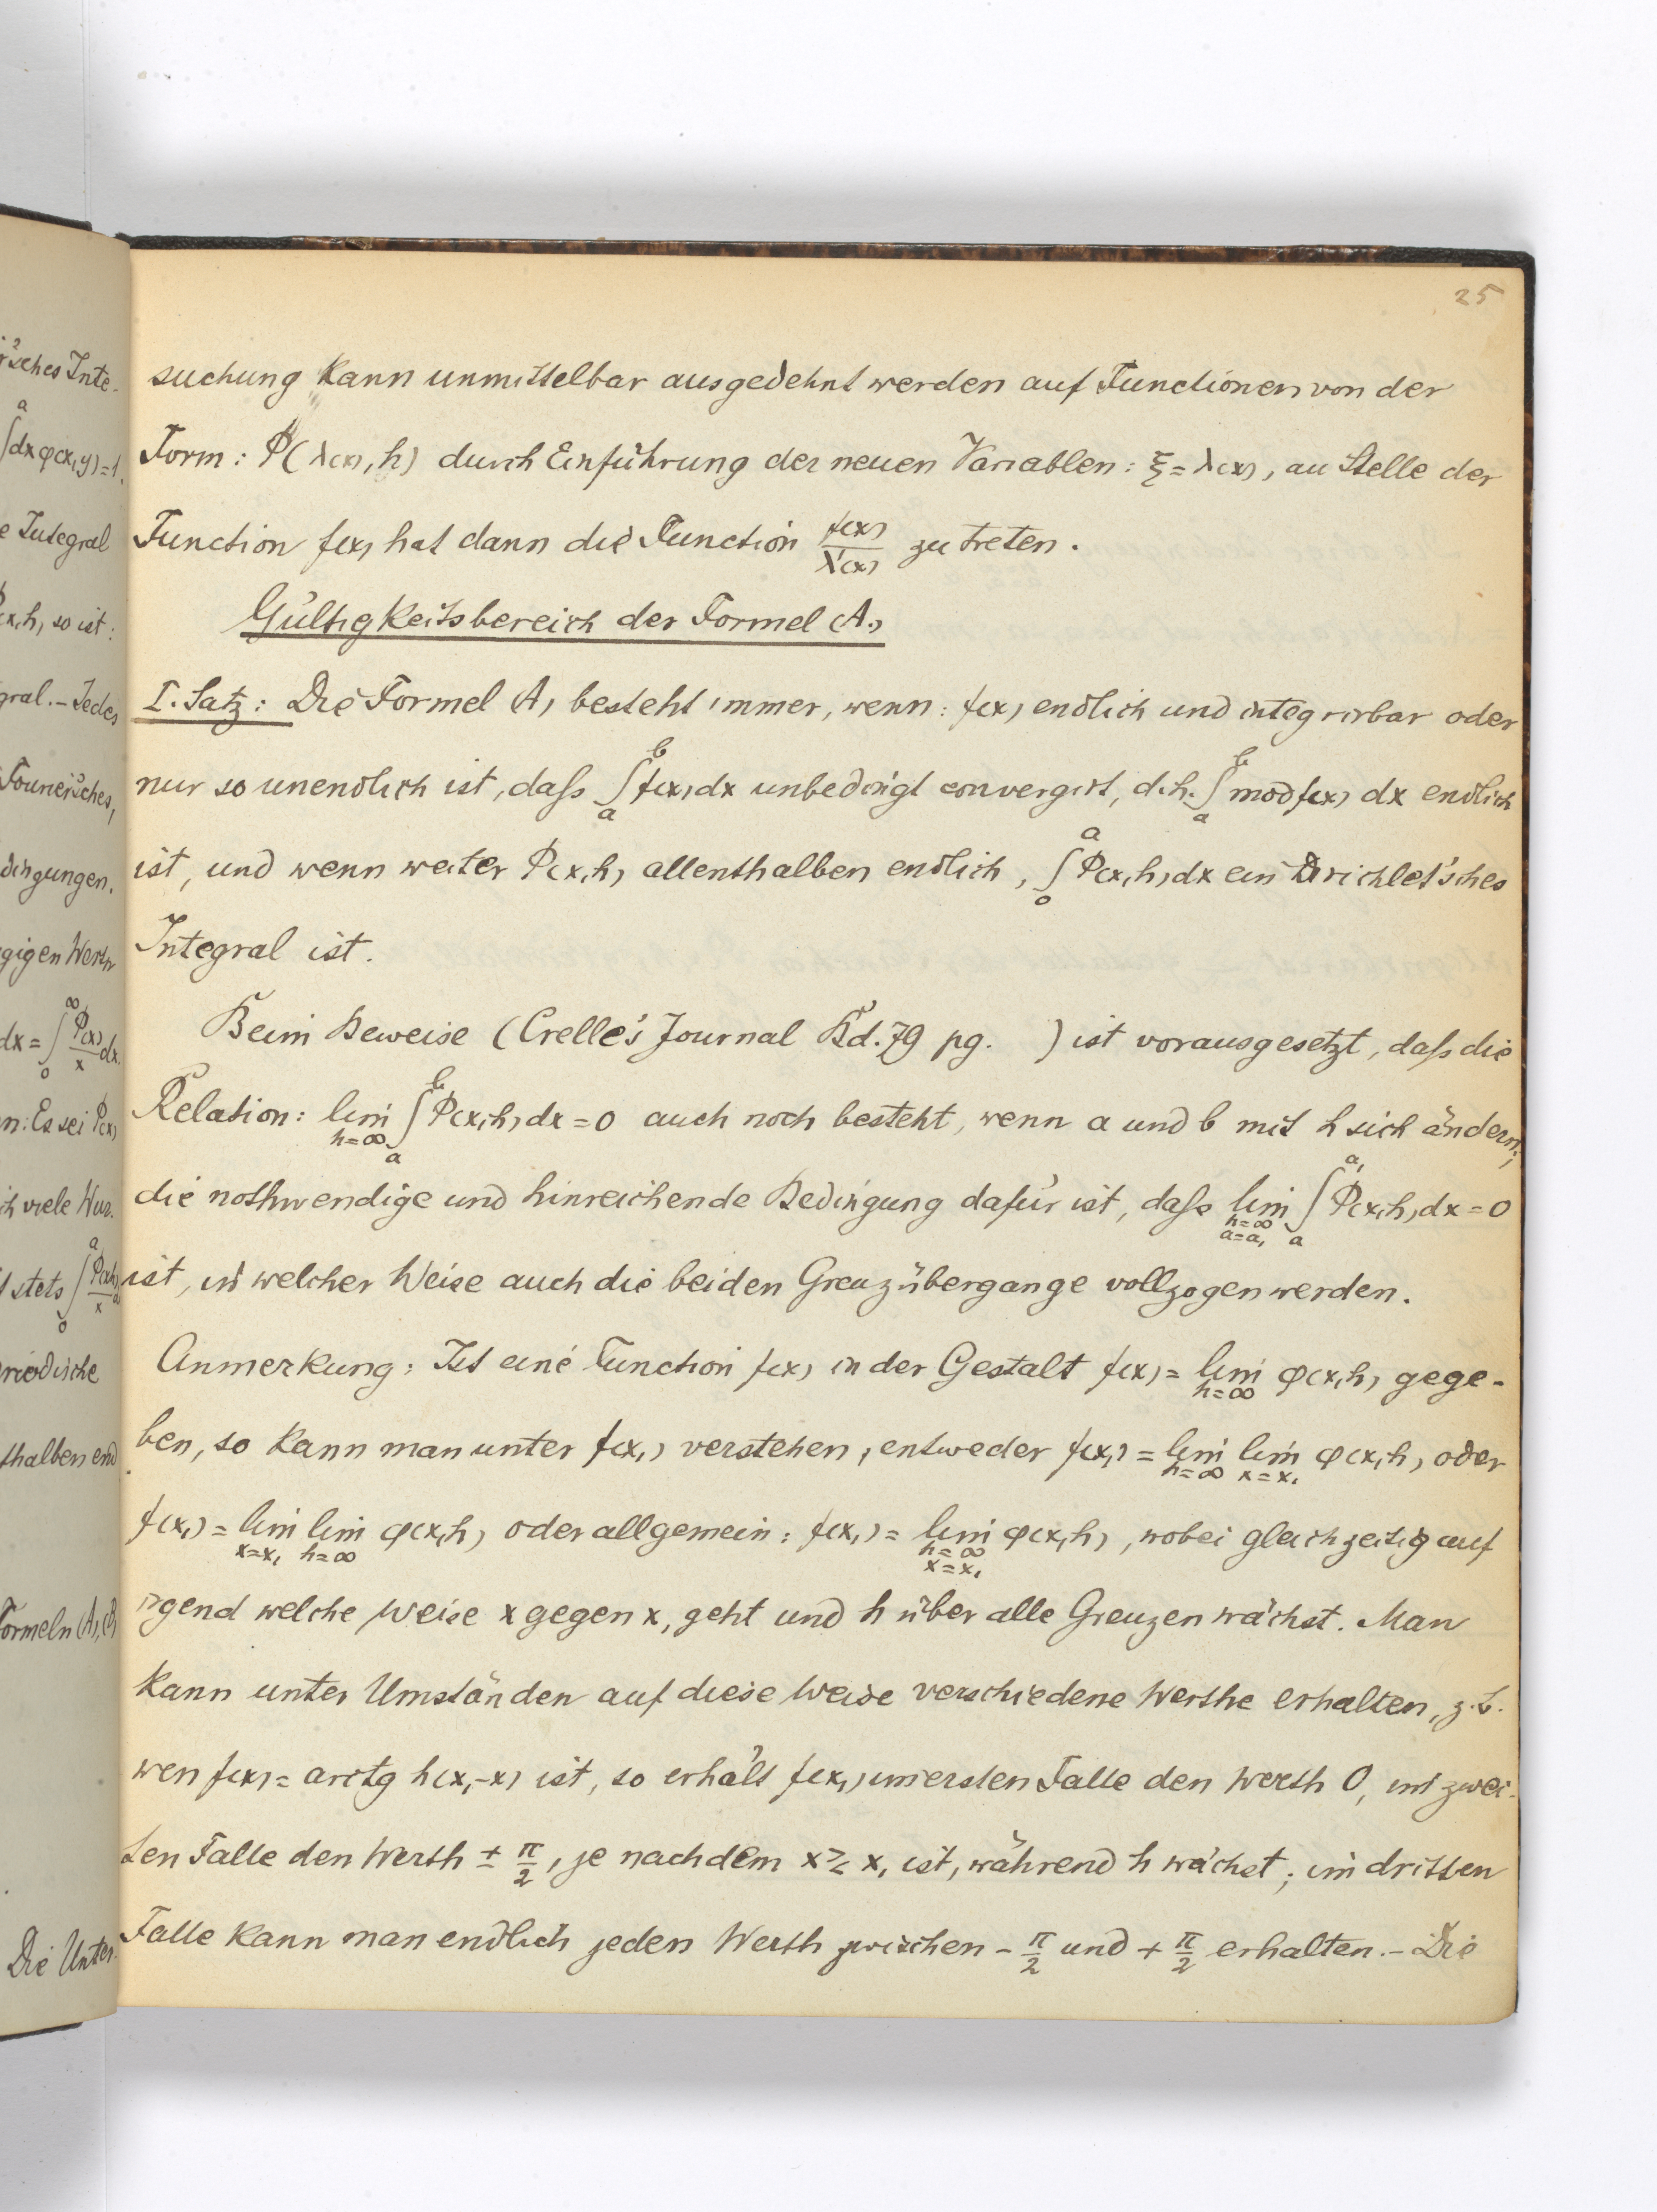 25
suchung kann unmittelbar ausgedehnt werden auf Functionen von der
Form: Φ(λ(x), h) durch Einführung der neuen Variablen: ξ = λ(x), an Stelle der
Function f(x) hat dann die Function f(x)/λ'(x) zu treten.
Gültigkeitsbereich der Formel (A.)
I. Satz: Die Formel (A) besteht immer, wenn: f(x) endlich und integrirbar oder
nur so unendlich ist, daſs ∫_a^b f(x)dx unbedingt convergirt, d.h. ∫_a^b mod f(x) dx endlich
ist, und wenn weiter Φ(x,h) allenthalben endlich, ∫_0^a Φ(x,h)dx ein Dirichlet'sches
Integral ist.
Beim Beweise (Crelle's Journal Bd. 79 pg. ) ist vorausgesetzt, daſs die
Relation: lim_{h=∞} ∫_a^b Φ(x,h)dx = 0 auch noch besteht, wenn a und b mit h sich ändern;
die nothwendige und hinreichende Bedingung dafür ist, daſs lim_{h=∞, a=a₁} ∫_a^{a₁} Φ(x,h)dx = 0
ist, in welcher Weise auch die beiden Grenzübergange vollzogen werden.
Anmerkung: Ist eine Function f(x) in der Gestalt f(x) = lim_{h=∞} φ(x,h) gege-
ben, so kann man unter f(x₁) verstehen, entweder f(x₁) = lim_{h=∞} lim_{x=x₁} φ(x,h) oder
f(x₁) = lim_{x=x₁} lim_{h=∞} φ(x,h) oder allgemein: f(x₁) = lim_{h=∞, x=x₁} φ(x,h), wobei gleichzeitig auf
irgend welche Weise x gegen x₁ geht und h über alle Grenzen wächst. Man
kann unter Umständen auf diese Weise verschiedene Werthe erhalten, z.B.
wen f(x) = arctg h(x₁-x) ist, so erhält f(x₁) im ersten Falle den Werth 0, im zwei-
ten Falle den Werth ± π/2, je nachdem x ≷ x₁ ist, während h wächst; im dritten
Falle kann man endlich jeden Werth zwischen - π/2 und + π/2 erhalten. - Die
'sches Inte-
∫^a dx φ(x,y) = 1.
e Integral
x,h) so ist:
gral. - Jedes
Fourier'sches,
dingungen.
gigen Werth
dx = ∫_0^∞ Φ(x)/x dx.
n: Es sei Φ(x)
ch viele Wur.
stets ∫_0^a
riodische
thalben end
Formeln (A), (B)
Die Unter-